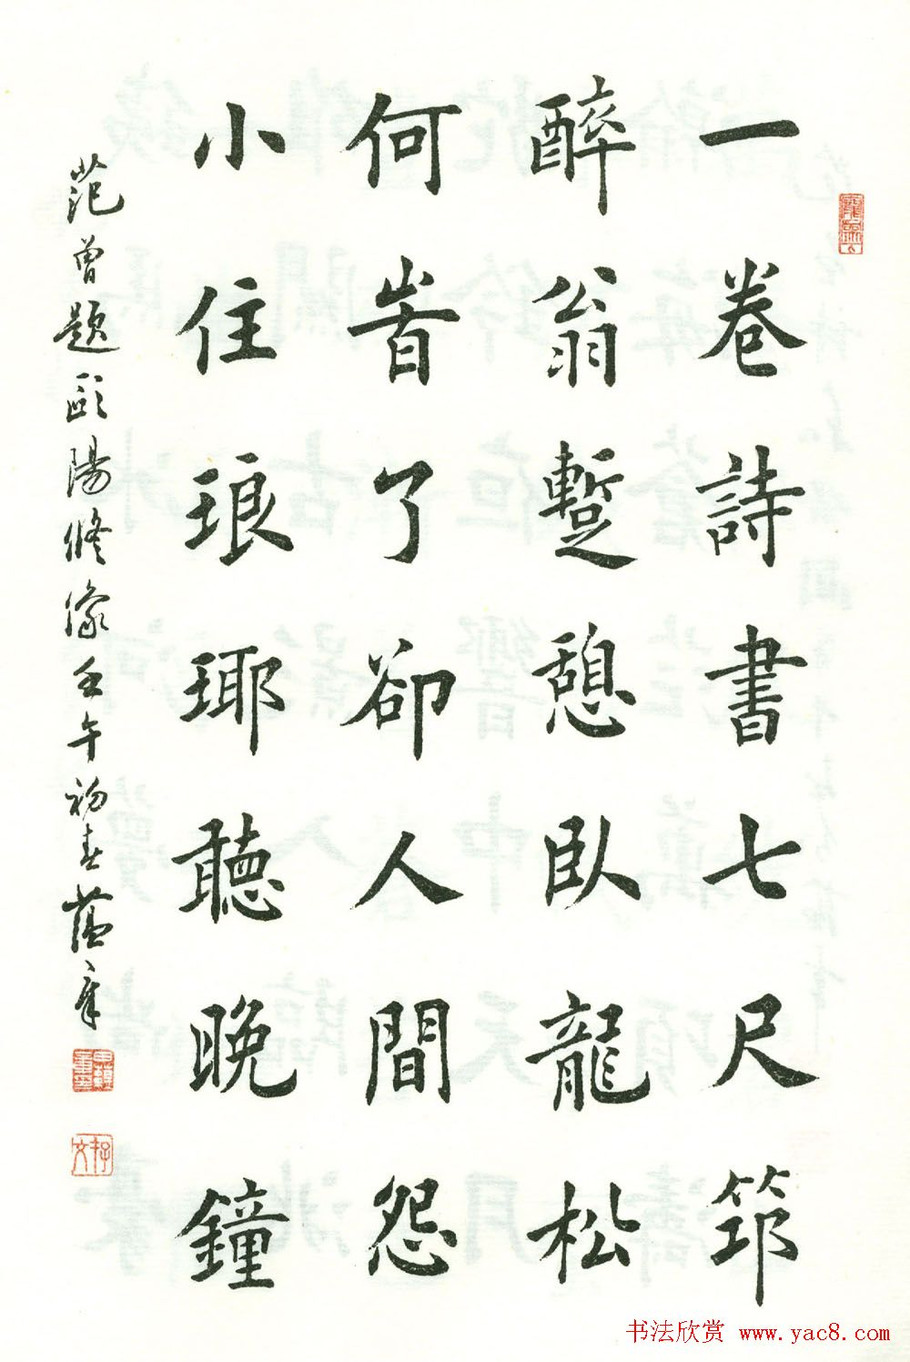 一卷詩書七尺筇
醉翁蹔憩臥龍松
何旹了卻人間怨
小住琅琊聽晚鐘
范曾題歐陽修像壬午初春蕴章
书法欣赏 www.yac8.com